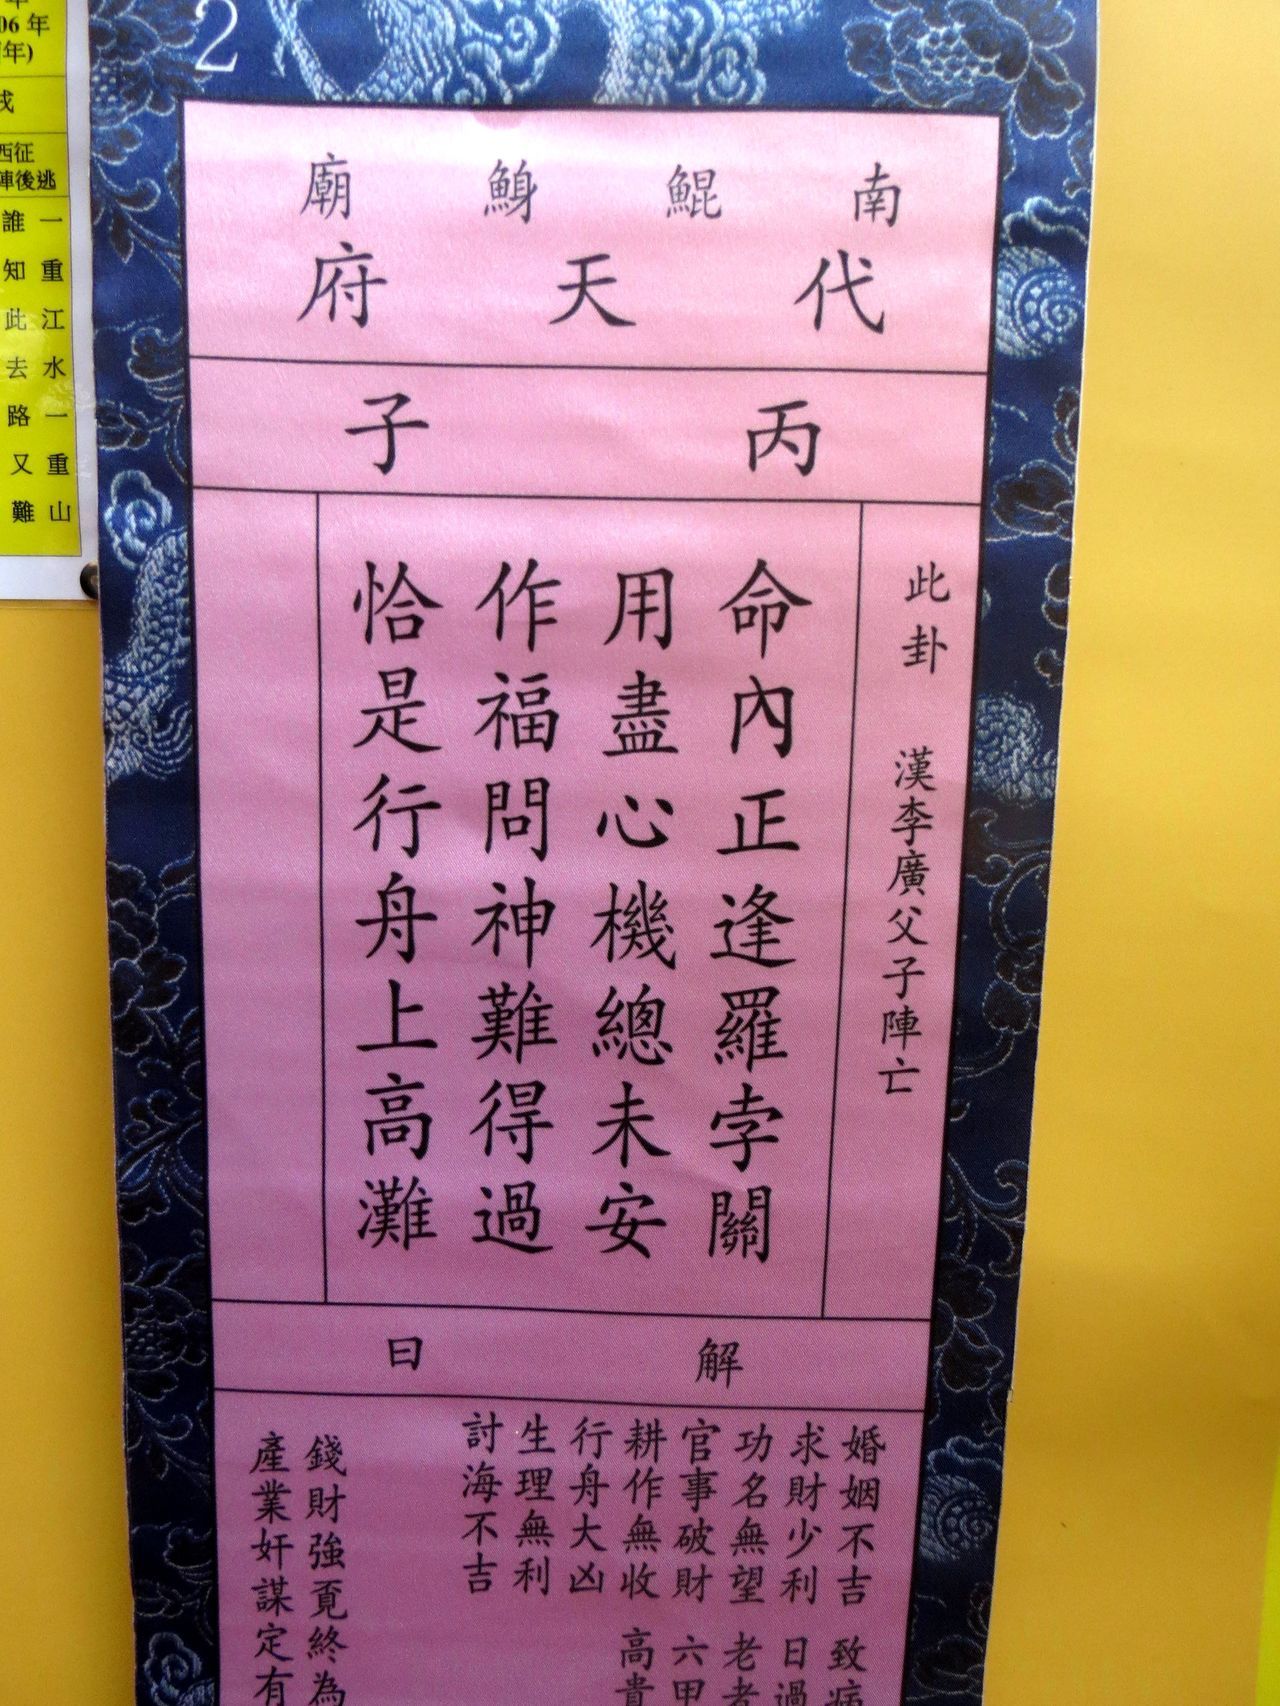 2
南鯤鯓廟
代天府
丙子
此卦 漢李廣父子陣亡
命內正逢羅孛關
用盡心機總未安
作福問神難得過
恰是行舟上高灘
解曰
婚姻不吉
求財少利
功名無望
官事破財
耕作無收
行舟大凶
生理無利
討海不吉
致病
日過
老者
六甲
高貴
錢財強覔終為
產業奸謀定有
年
06年
年)
戌
西征
陣後逃
一重江水一重山
誰知此去路又難